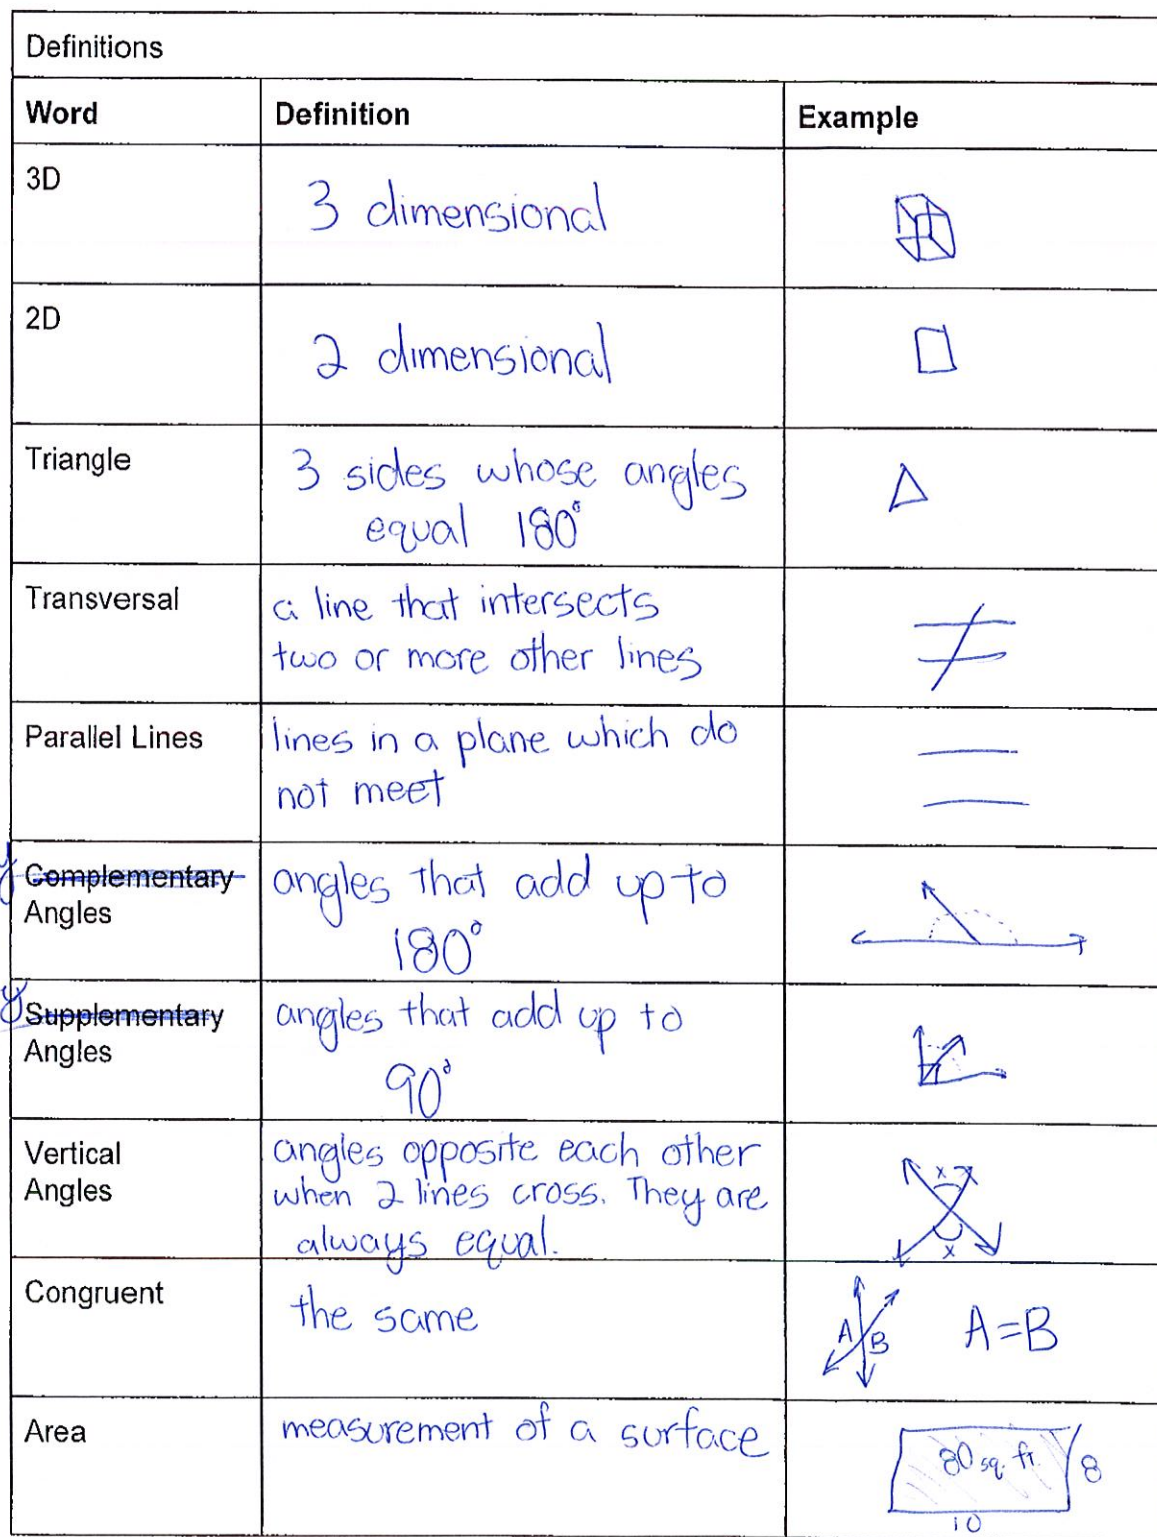 Definitions
Word Definition Example
3D 3 dimensional
2D 2 dimensional
Triangle 3 sides whose angles
equal 180°
Transversal a line that intersects
two or more other lines
Parallel Lines lines in a plane which do
not meet
y Complementary angles that add up to
Angles 180°
y Supplementary angles that add up to
Angles 90°
Vertical angles opposite each other
Angles when 2 lines cross. They are
always equal.
x
x
Congruent the same A B A=B
Area measurement of a surface 80 sq. ft. 8
10